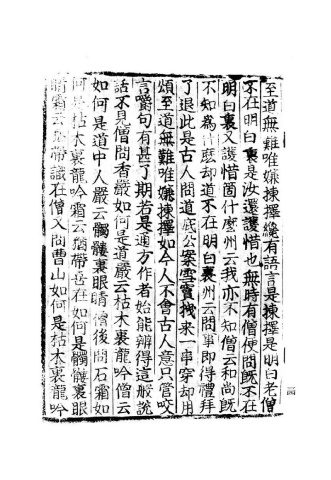 至道無難唯嫌揀擇纔有語言是揀擇是明白老僧
不在明白裏是汝還護惜也無時有僧便問既不在
明白裏又護惜箇什麼州云我亦不知僧云和尚既
不知為什麽却道不在明白裏州云問事即得禮拜
了退此是古人問道底公案雪竇拽來一串穿却用
頌至道無難唯嫌揀擇如今人不會古人意只管咬
言嚼句有甚了期若是通方作者始能辨得這般說
話不見僧問香嚴如何是道嚴云枯木裏龍吟僧云
如何是道中人嚴云髑髏裏眼睛僧後問石霜如
何是枯木裏龍吟霜云猶帶喜在如何是髑髏裏眼
睛霜云猶帶識在僧又問曹山如何是枯木裏龍吟
一四